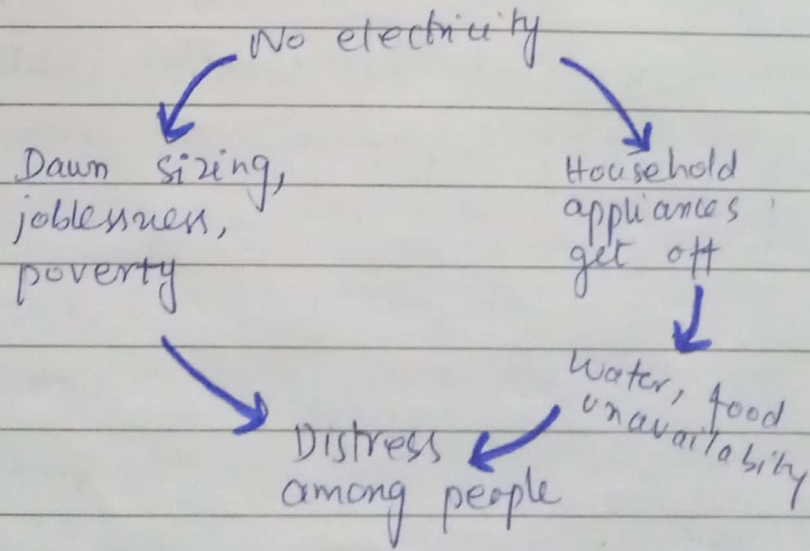 No electricity
Dawn sizing,
joblessness,
poverty
Household
appliances
get off
Water, food
unavailability
Distress
among people